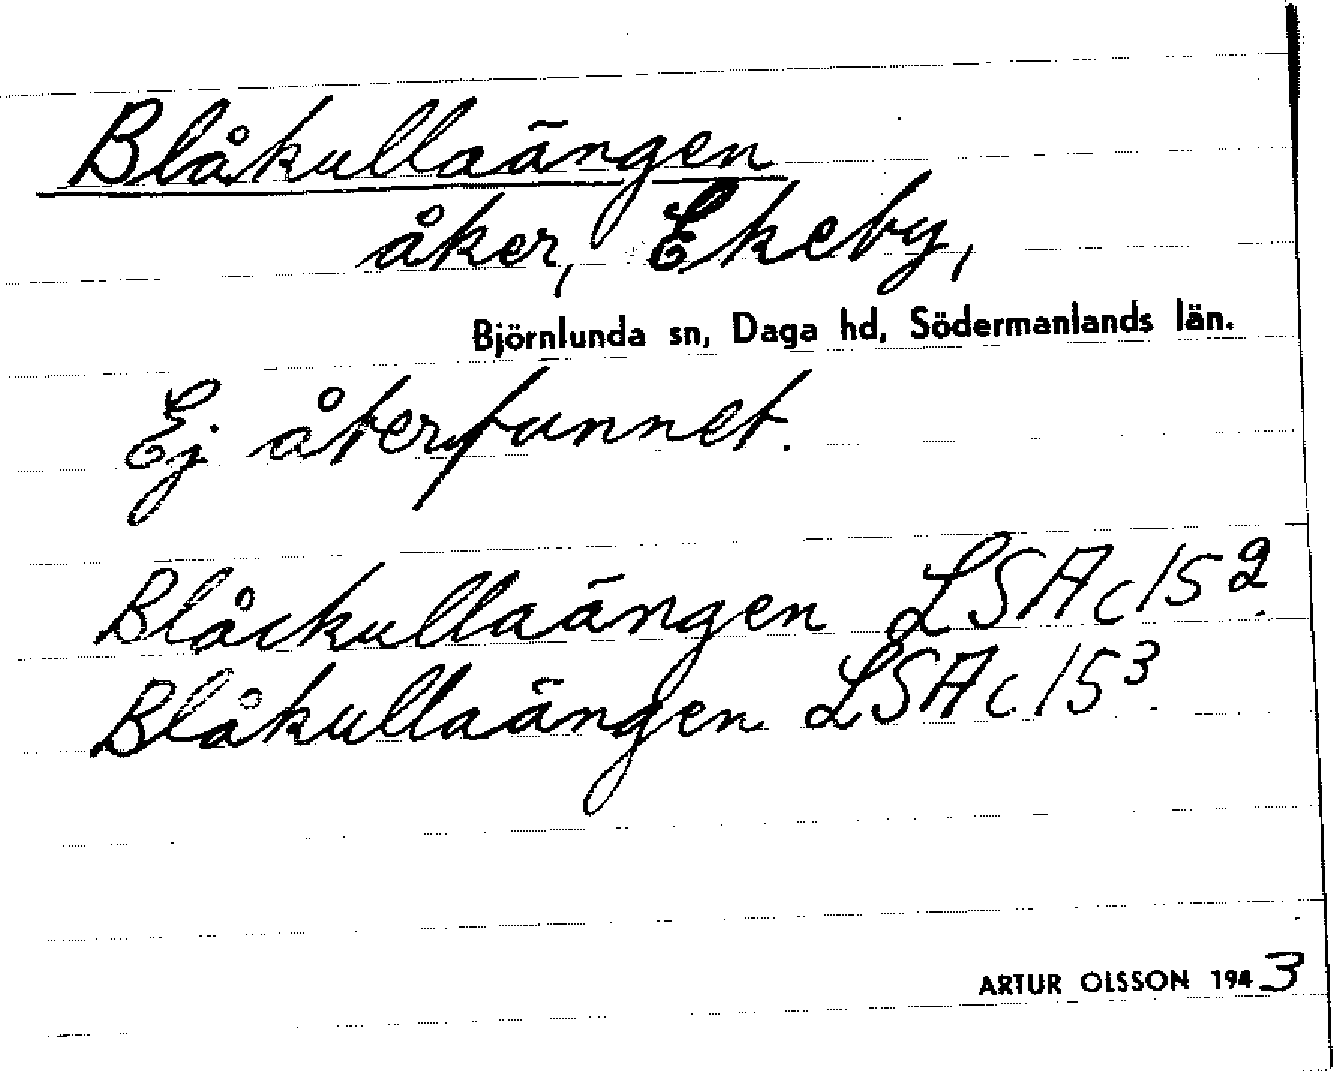 Blåkullaängen
åker, Ekeby,
Björnlunda sn, Daga hd, Södermanlands län.
Ej återfunnet.
Blåckullaängen LSA c 15².
Blåkullaängen LSA c 15³.
ARTUR OLSSON 1943